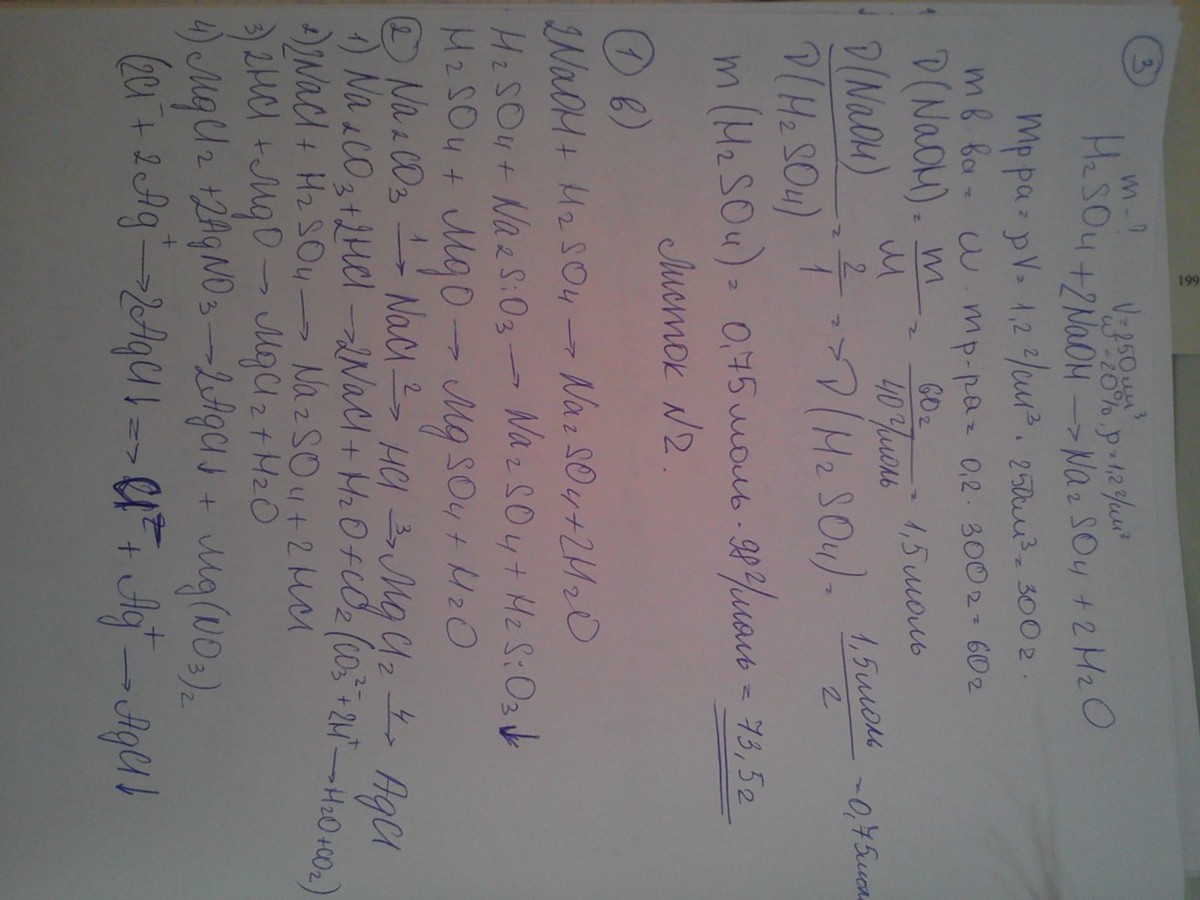 ③ m-? V=250 см³
ω=20%, ρ=1,2 г/см³
H₂SO₄ + 2NaOH → Na₂SO₄ + 2H₂O
mр-ра = ρV = 1,2 г/см³ · 250см³ = 300г.
mв-ва = ω · mр-ра = 0,2 · 300г = 60г
ν(NaOH) = m/M = 60г/40г/моль = 1,5 моль
ν(NaOH)/ν(H₂SO₄) = 2/1 => ν(H₂SO₄) = 1,5моль/2 = 0,75моль
m(H₂SO₄) = 0,75моль · 98г/моль = 73,5г
Листок N2.
① в)
2NaOH + H₂SO₄ → Na₂SO₄ + 2H₂O
H₂SO₄ + Na₂SiO₃ → Na₂SO₄ + H₂SiO₃↓
H₂SO₄ + MgO → MgSO₄ + H₂O
② Na₂CO₃ →¹ NaCl →² HCl →³ MgCl₂ →⁴ AgCl
1) Na₂CO₃ + 2HCl → 2NaCl + H₂O + CO₂ (CO₃²⁻ + 2H⁺ → H₂O + CO₂)
2) 2NaCl + H₂SO₄ → Na₂SO₄ + 2HCl
3) 2HCl + MgO → MgCl₂ + H₂O
4) MgCl₂ + 2AgNO₃ → 2AgCl↓ + Mg(NO₃)₂
(2Cl⁻ + 2Ag⁺ → 2AgCl↓ => Cl⁻ + Ag⁺ → AgCl↓
199